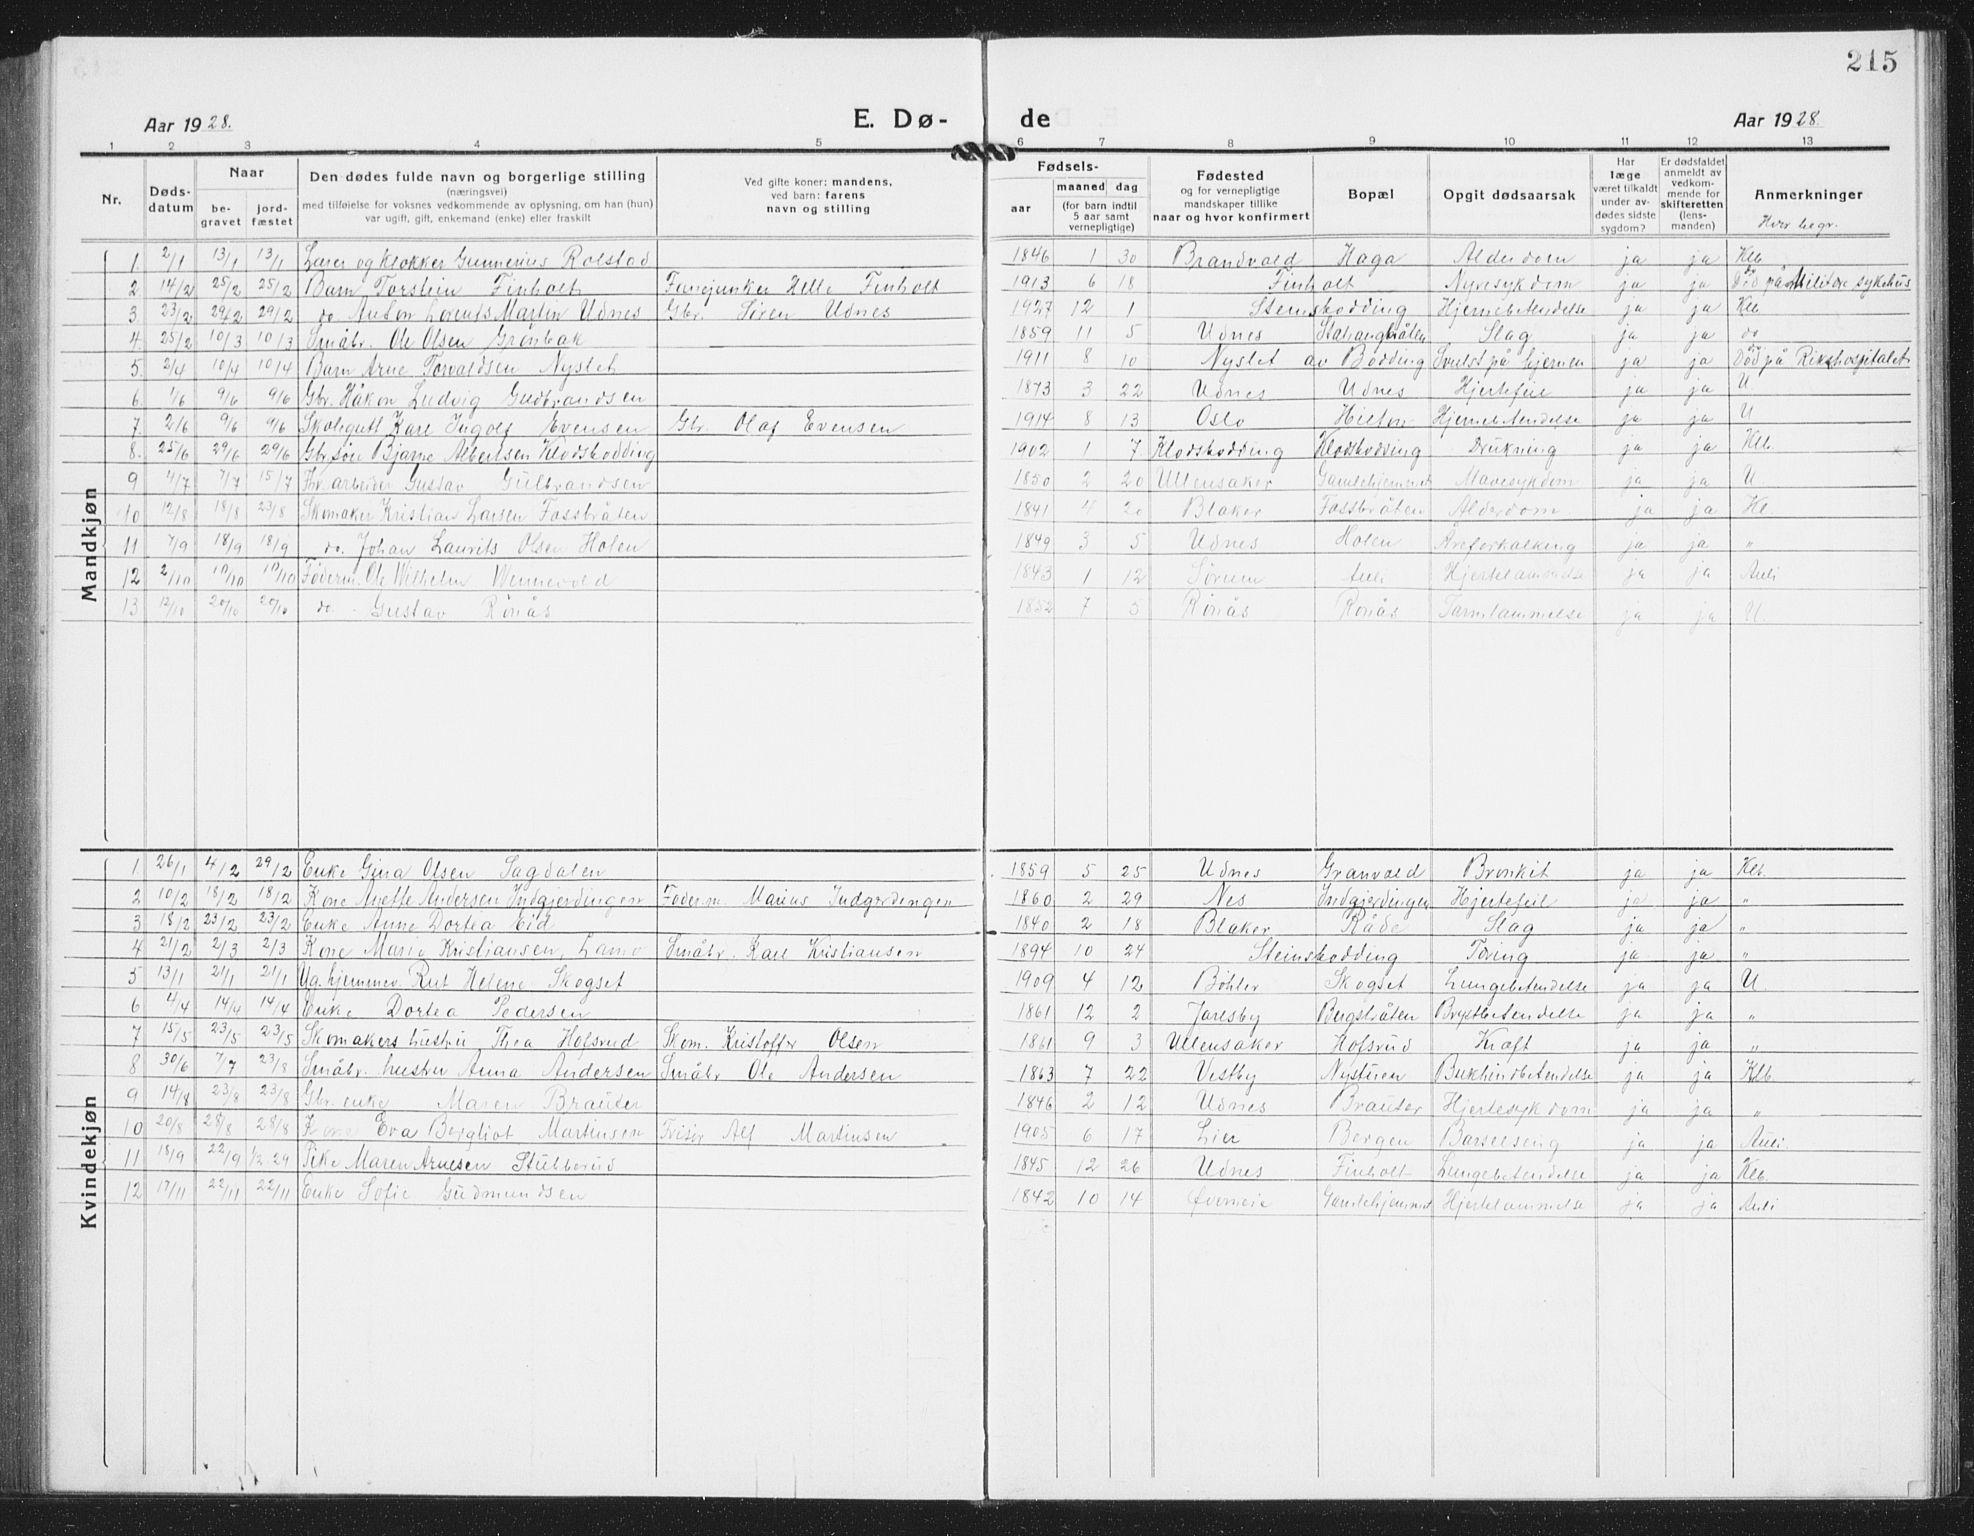 215
Aar 1928. E. Dø- de Aar 1928.
1 2 3 4 5 6 7 8 9 10 11 12 13
Nr. Døds-datum Naar be-gravet jord-fæstet Den dødes fulde navn og borgerlige stilling (næringsvei) med tilføielse for voksnes vedkommende av oplysning, om han (hun) var ugift, gift, enkemand (enke) eller fraskilt Ved gifte koner: mandens, ved barn: farens navn og stilling Fødsels- aar maaned dag (for barn indtil 5 aar samt vernepligtige) Fødested og for vernepligtige mandskaper tillike naar og hvor konfirmert Bopæl Opgit dødsaarsak Har læge været tilkaldt under av-dødes sidste sygdom? Er dødsfaldet anmeldt av vedkom-mende for skifteretten (lens-manden) Anmerkninger Hvor begr.
Mandkjøn
1. 2/1 13/1 13/1 Lærer og klokker Gunnerius Rolstad 1846 1 30 Brandvold Haga Alderdom ja ja Klb
2 14/2 25/2 25/2 Barn Torstein Finholt Fanejunker Helle Finholt 1913 6 18 Finholt Nyresykdom ja ja Död på Militære sykehus
3 23/2 29/2 29/2 do. Anton Lorents Martin Udnes Gbr. Sören Udnes 1927 12 1 Steinskodding Hjernebetendelse ja ja Klb
4. 25/2 10/3 10/3 Småbr. Ole Olsen Grönbak 1859 11 5 Udnes Slag ja ja do
5. 2/4 10/4 10/4 Barn Arne Torvaldsen Nyslet 1911 8 10 Nyslet av Bödding Svulst på hjernen ja ja Död på Rikshospitalet
6. 1/6 9/6 9/6 Gbr. Håkon Ludvig Gudbrandsen 1873 3 22 Udnes Udnes Hjertefeil ja ja U
7. 2/6 9/6 9/6 Skolegutt Karl Ingolf Evensen Gbr. Olaf Evensen 1914 8 13 Oslo Hilton Hjernebetendelse ja ja U
8. 25/6 29/6 29/6 Gbr.sön Bjarne Albertsen Klodskodding 1902 1 7 Klodskodding Klodskodding Drukning ja ja Klb.
9 4/7 7/7 15/7 Fhv. arbeider Gustav Gulbrandsen 1850 2 20 Ullensaker Gamlehjemmet Mavesykdom ja ja U
10 12/8 18/8 23/8 Skomaker Kristian Larsen Fossbråten 1841 4 20 Blaker Fossbråten Alderdom ja ja Kl.
11 7/9 18/9 18/9 do. Johan Laurits Olsen Holen 1849 3 5 Udnes Holen Åreforkalkning ja ja "
12 2/10 10/10 10/10 Föderm. Ole Wilhelm Wennevold 1843 1 12 Sörum Auli Hjertelammelse ja ja Auli
13 12/10 20/10 20/10 do. Gustav Rönås 1852 7 5 Rönås Rönås Tarmlammelse ja ja U.
Kvindekjøn
1 26/1 4/2 29/2 Enke Gina Olsen Sagdalen 1859 5 25 Udnes Granvold Bronkit ja ja Klb.
2 10/2 18/2 18/2 Kone Anette Andersen Indgjerdingen Föderm. Marius Indgerdingen 1860 2 29 Nes Indgjerdingen Hjertefeil ja ja "
3 18/2 23/2 23/2 Enke Anne Dortea Eid 1840 2 18 Blaker Råde Slag ja ja "
4 21/2 2/3 2/3 Kone Marie Kristiansen, Lamo Småbr. Karl Kristiansen 1894 10 24 Steinskodding Töring ja ja "
5 13/1 21/1 21/1 Ug. hjemmev. Rut Helene Skogset 1909 4 12 Böhler Skogset Lungebetendelse ja ja U.
6 4/4 14/4 14/4 Enke Dortea Pedersen 1861 12 2 Jaresby Bergsbråten Brystbetendelse ja ja "
7 15/5 23/5 23/5 Skomakers hustru Thea Hofsrud Skom. Kristoffer Olsen 1861 9 3 Ullensaker Hofsrud Kræft ja ja "
8 30/6 7/7 23/8 Småbr. hustru Anna Andersen Småbr Ole Andersen 1863 7 22 Vestby Nystuen Bukhindbetendelse ja ja Klb.
9 14/8 23/8 23/8 Gbr. enke Maren Brauter 1846 2 12 Udnes Brauter Hjertesykdom ja ja "
10 20/8 28/8 28/8 Kone Eva Bergliot Martinsen Frisör Alf Martinsen 1905 6 17 Lier Bergen Barselseng ja ja Auli
11 18/9 22/9 Pike Maren Arnesen Stubberud 1845 12 26 Udnes Finholt Lungebetendelse ja ja Klb.
12 17/11 22/11 22/11 Enke Sofie Gudmundsen 1842 10 14 Gamlehjemmet Hjertelammelse ja ja Auli